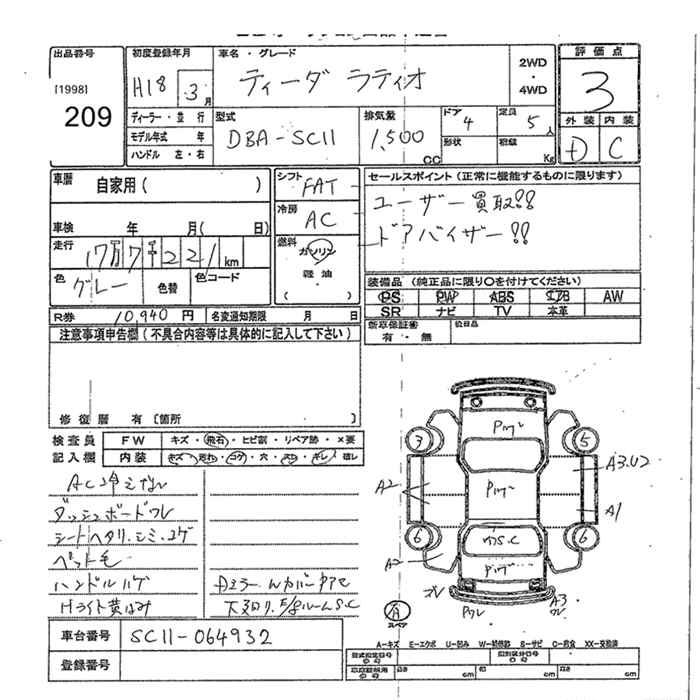 出品番号
[1998]
209
初度登録年月
H18 3月
車名・グレード
ティーダ ラティオ
2WD
・
4WD
評価点
3
外装 内装
D C
ディーラー・並行
モデル年式 年
ハンドル 左・右
型式
DBA-SC11
排気量
1,500
CC
ドア
4
定員
5人
形状
積載
Kg
車歴
自家用( )
車検 年 月( 日)
走行
17万7千221km
色
グレー
色替
色コード
シフト
FAT
冷房
AC
燃料
ガソリン
軽油
( )
セールスポイント(正常に機能するものに限ります)
ユーザー買取!!
ドアバイザー!!
装備品(純正品に限り○を付けてください)
PS PW ABS エアB AW
SR ナビ TV 本革
新車保証書
有・無
後日品
R券 10,940円
名変通知期限 月 日
注意事項申告欄(不具合内容等は具体的に記入して下さい)
修復歴 有[箇所 ]
検査員
記入欄
FW キズ・飛石・ヒビ割・リペア跡・×要
内装 キズ・汚れ・コゲ・穴・スレ・キレ・破レ
AC冷えない
ダッシュボードワレ
シートヘタリ.シミ.コゲ
ペット毛
ハンドルハゲ
Hライト黄ばみ
車台番号 SC11-064932
登録番号
3
5
6
6
A2
A2
A3.U2
A1
A3
スペア
A-キズ E-エクボ U-凹み W-補修跡 S-サビ C-腐食 XX-交換済
型式指定番号
類別区分番号
長さ cm
幅 cm
高さ cm